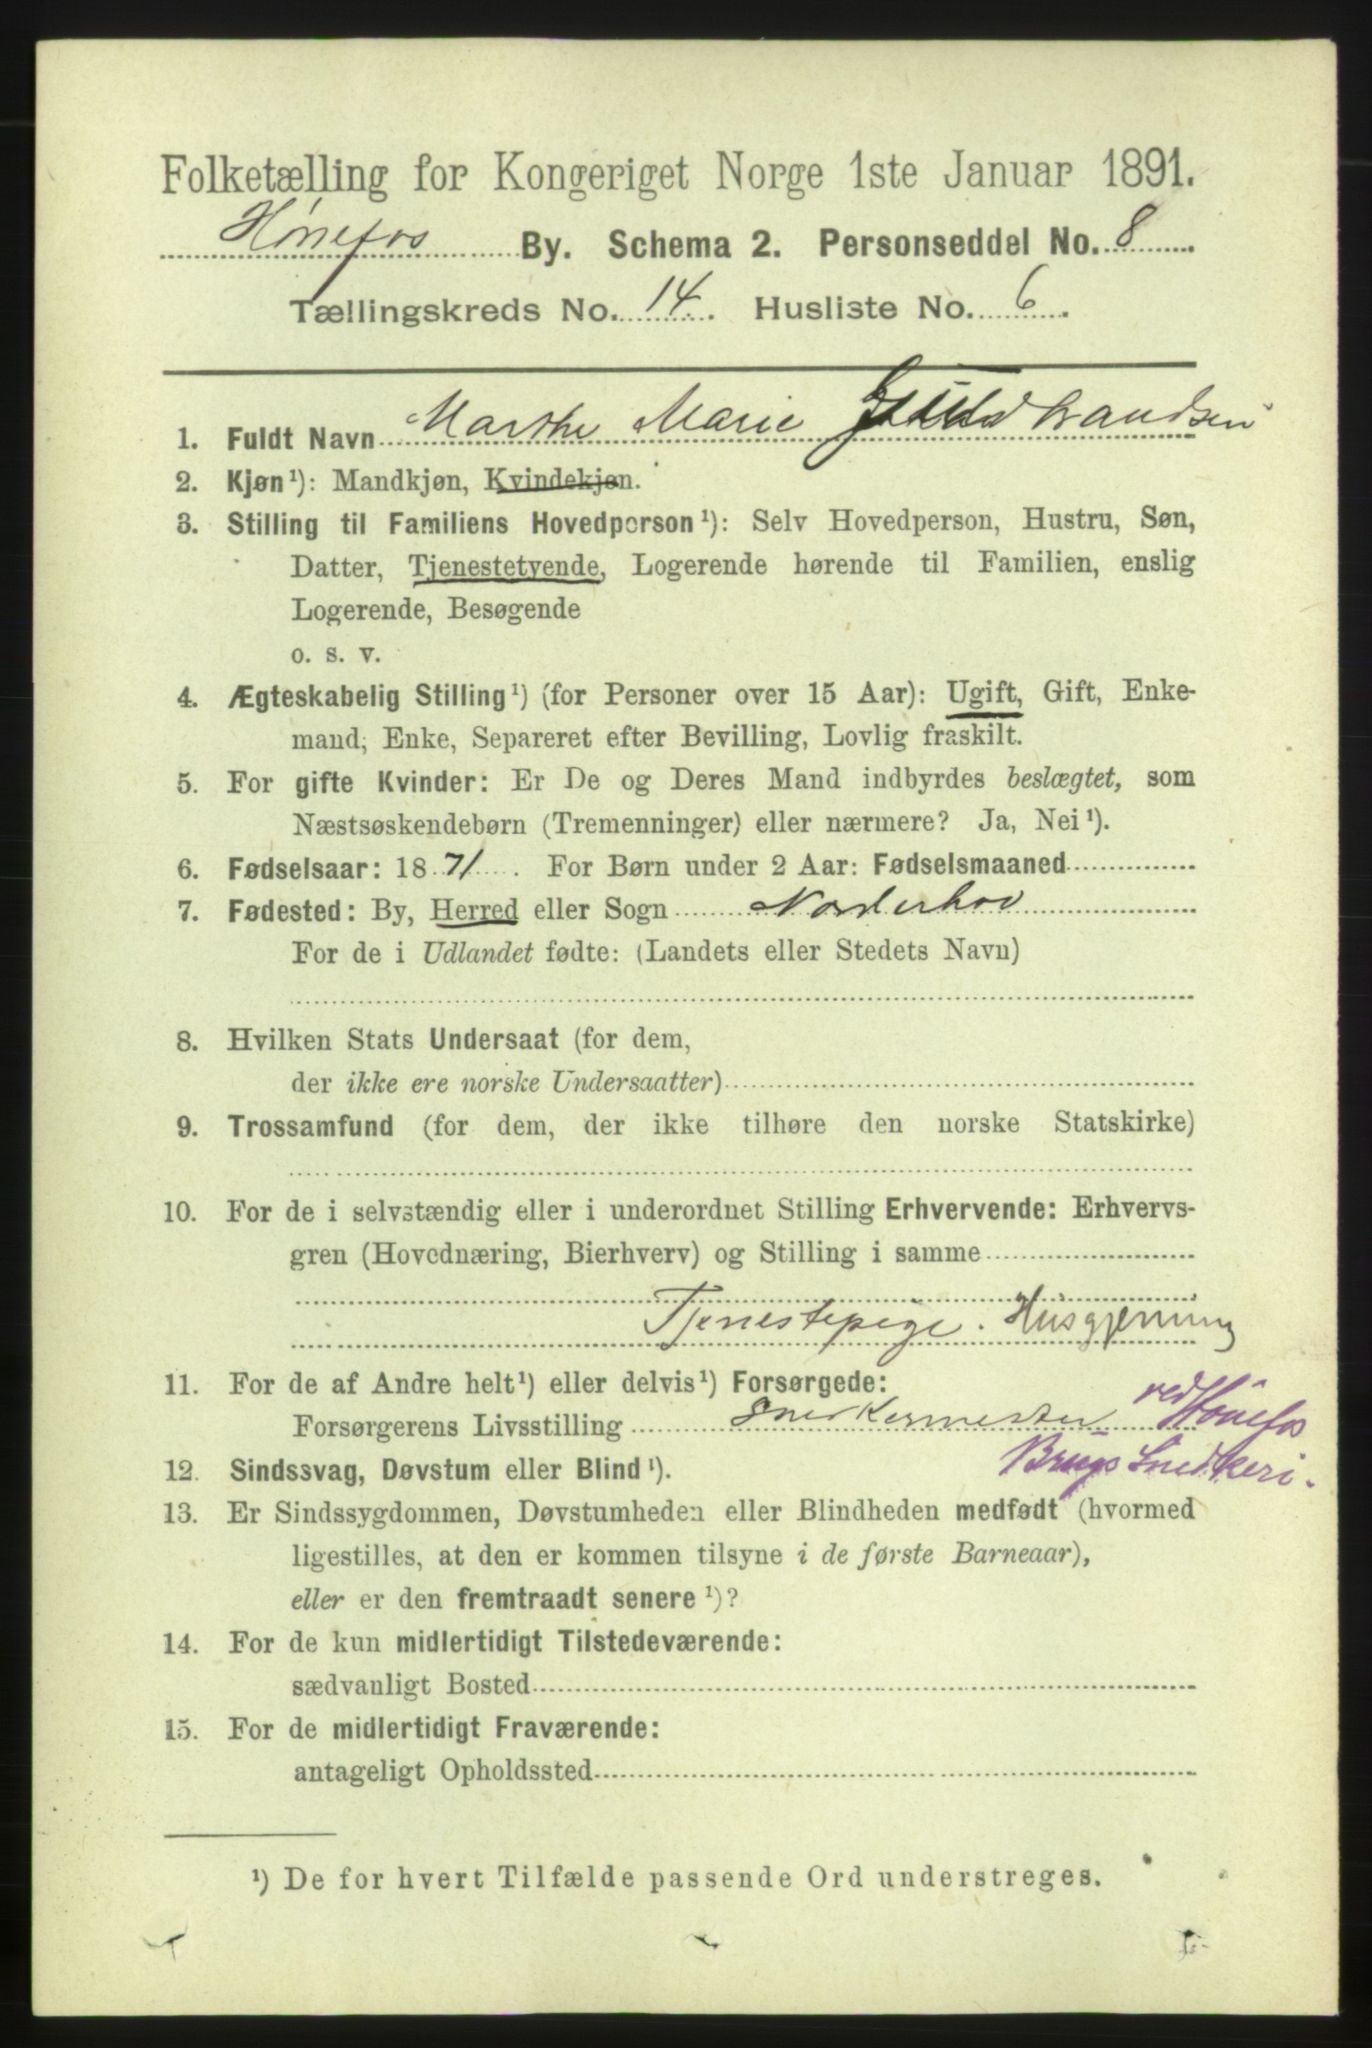 Folketælling for Kongeriget Norge 1ste Januar 1891.
Hønefos By. Schema 2. Personseddel No. 8
Tællingskreds No. 14. Husliste No. 6.
1. Fuldt Navn Marthe Marie Guldbrandsen
2. Kjøn¹): Mandkjøn, Kvindekjøn.
3. Stilling til Familiens Hovedperson¹): Selv Hovedperson, Hustru, Søn,
Datter, Tjenestetyende, Logerende hørende til Familien, enslig
Logerende, Besøgende
o. s. v.
4. Ægteskabelig Stilling¹) (for Personer over 15 Aar): Ugift, Gift, Enke-
mand, Enke, Separeret efter Bevilling, Lovlig fraskilt.
5. For gifte Kvinder: Er De og Deres Mand indbyrdes beslægtet, som
Næstsøskendebørn (Tremenninger) eller nærmere? Ja, Nei¹).
6. Fødselsaar: 1871. For Børn under 2 Aar: Fødselsmaaned
7. Fødested: By, Herred eller Sogn Norderhov
For de i Udlandet fødte: (Landets eller Stedets Navn)
8. Hvilken Stats Undersaat (for dem,
der ikke ere norske Undersaatter)
9. Trossamfund (for dem, der ikke tilhøre den norske Statskirke)
10. For de i selvstændig eller i underordnet Stilling Erhvervende: Erhvervs-
gren (Hovednæring, Bierhverv) og Stilling i samme
Tjenestepige. Husgjerning
11. For de af Andre helt¹) eller delvis¹) Forsørgede:
Forsørgerens Livsstilling Snedkermester ved Hønefos
Brugs Snedkeri.
12. Sindssvag, Døvstum eller Blind¹).
13. Er Sindssygdommen, Døvstumheden eller Blindheden medfødt (hvormed
ligestilles, at den er kommen tilsyne i de første Barneaar),
eller er den fremtraadt senere¹)?
14. For de kun midlertidigt Tilstedeværende:
sædvanligt Bosted
15. For de midlertidigt Fraværende:
antageligt Opholdssted
¹) De for hvert Tilfælde passende Ord understreges.